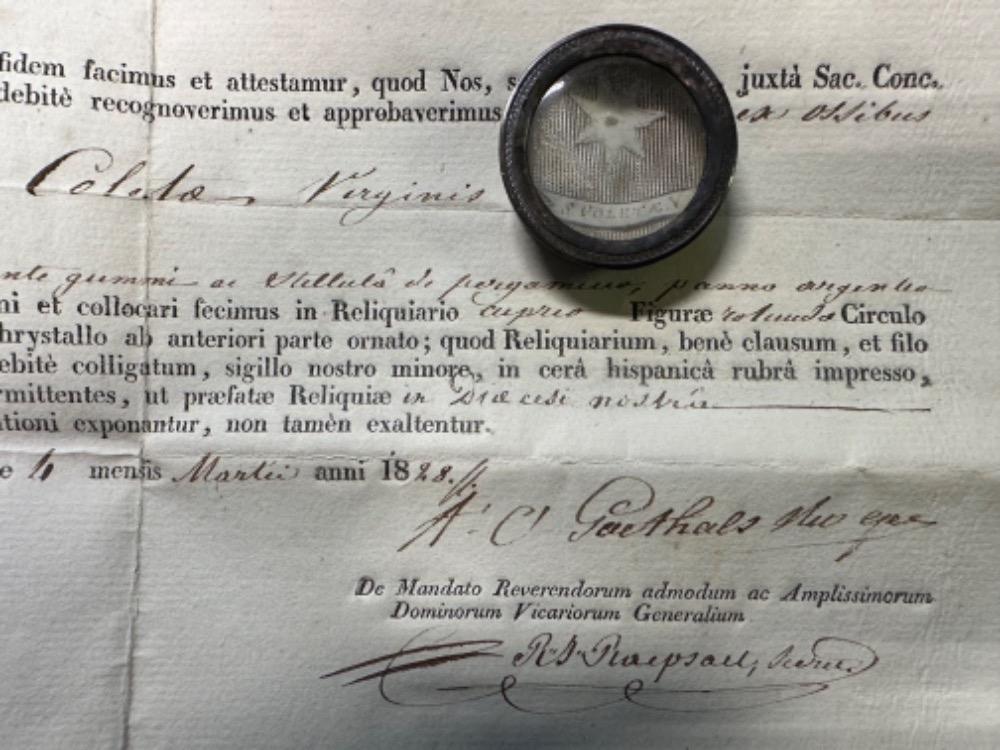 fidem facimus et attestamur, quod Nos, s juxtà Sac. Conc.
debitè recognoverimus et approbaverimus ex ossibus
Coletæ Virginis
S COLETÆ V
gummi ac stellulâ de pergameno, panno argenteo
ni et collocari fecimus in Reliquiario cupreo Figuræ rotundæ Circulo
hrystallo ab anteriori parte ornato; quod Reliquiarium, benè clausum, et filo
ebitè colligatum, sigillo nostro minore, in cerâ hispanicâ rubrâ impresso,
rmittentes, ut præfatæ Reliquiæ in Diœcesi nostrâ
ationi exponantur, non tamèn exaltentur.
e 4 mensis Martii anni 1828.
A. C. Goethals
De Mandato Reverendorum admodum ac Amplissimorum
Dominorum Vicariorum Generalium